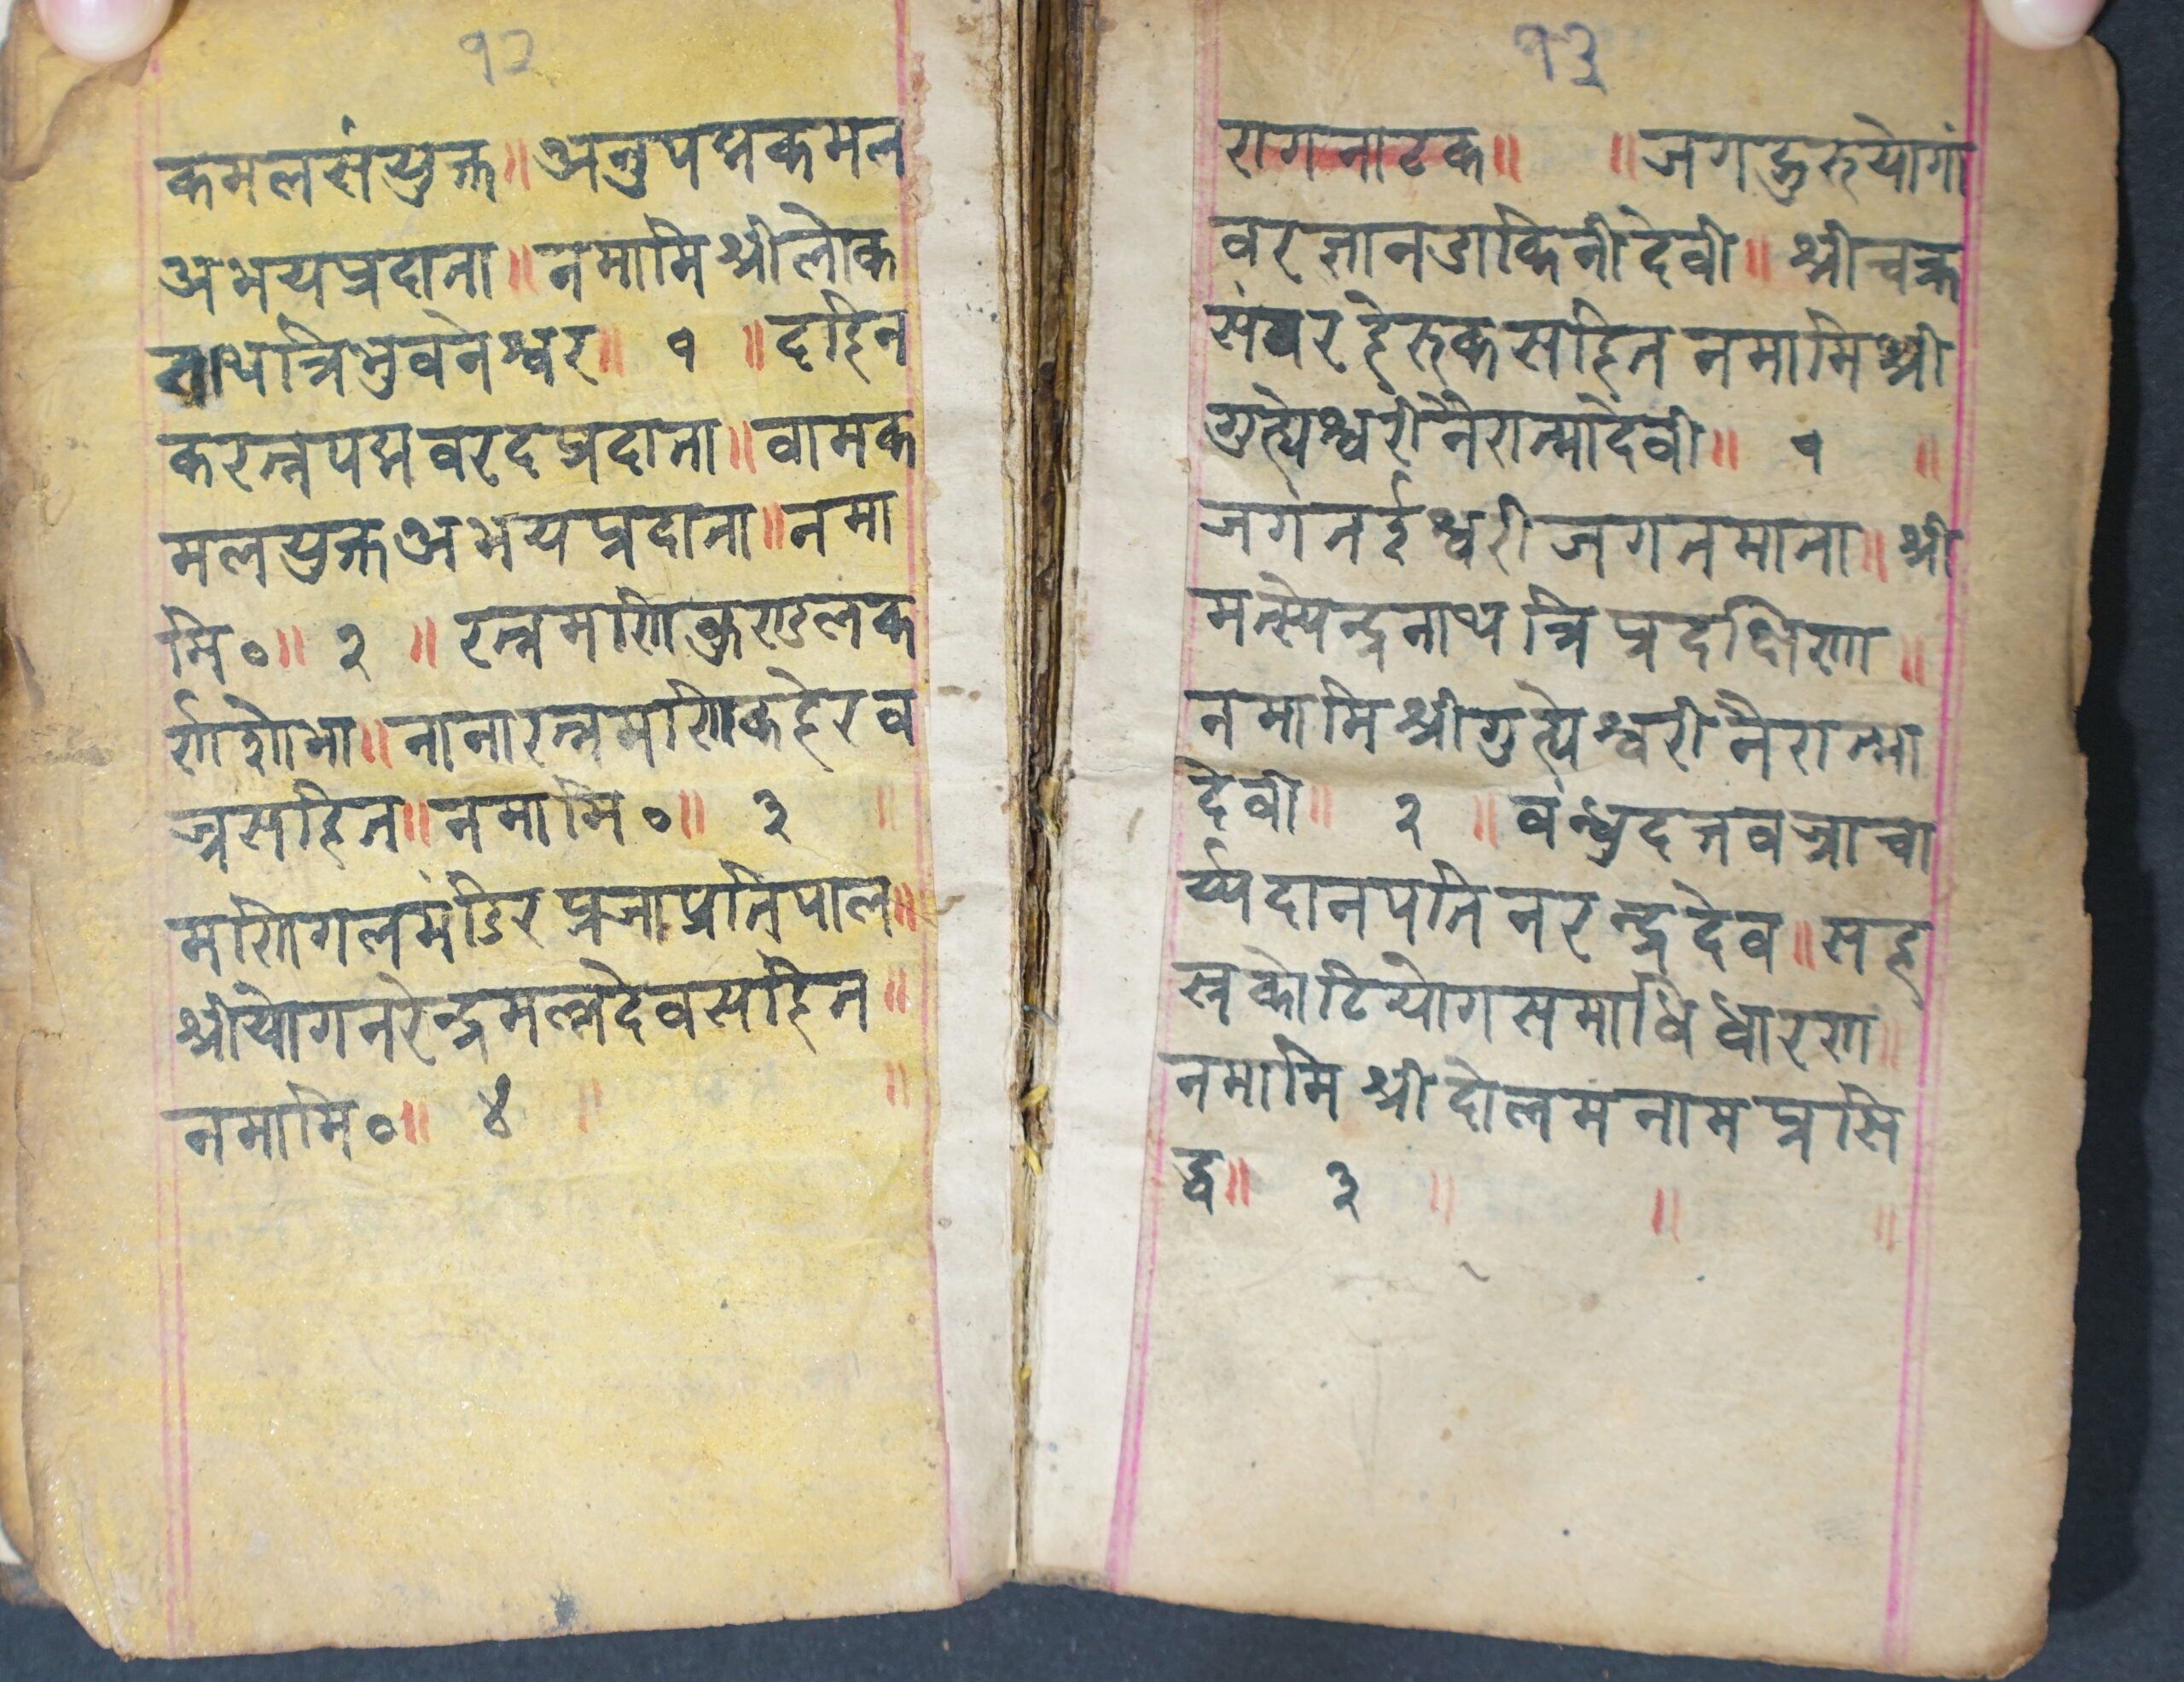 १२
कमलसंयुक्त॥अनुपद्मकमल
अभयप्रदाता॥नमामिश्रीलोक
नाथत्रिभुवनेश्वर॥ १ ॥दहिन
करत्नपद्मवरदप्रदाता॥वामक
मलयुक्तअभयप्रदाता॥नमा
मि०॥ २ ॥रत्नमणिकुण्डलक
र्णशोभा॥नानारत्नमणिकहेरव
ज्रसहित॥नमामि०॥ ३ ॥
मणिगलमंडिरप्रजाप्रतिपाल॥
श्रीयोगनरेन्द्रमल्लदेवसहित॥
नमामि०॥ ४ ॥ ॥
१३
रागनाटक॥ ॥जगद्गुरुयोगां
वरज्ञानडाकिनीदेवी॥श्रीचक्र
संवरहेरुकसहितनमामिश्री
गुह्येश्वरीनैरात्मादेवी॥ १ ॥
जगतईश्वरीजगतमाता॥श्री
मत्स्येन्द्रनाथत्रिप्रदक्षिणा॥
नमामिश्रीगुह्येश्वरीनैरात्मा
देवी॥ २ ॥वन्धुदत्तवज्राचा
र्य्यदानपतिनरन्द्रदेव॥सह
स्रकोटियोगसमाधिधारण॥
नमामिश्रीदोलमनामप्रसि
द्ध॥ ३ ॥ ॥ ॥